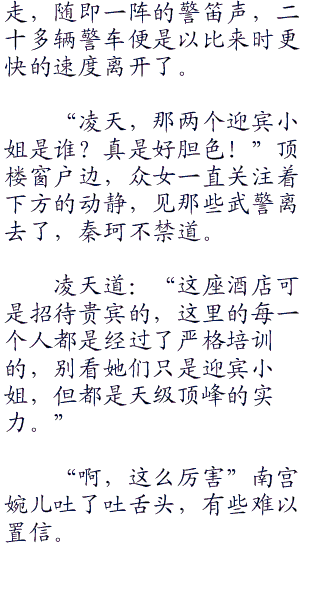 走，随即一阵的警笛声，二
十多辆警车便是以比来时更
快的速度离开了。
“凌天，那两个迎宾小
姐是谁？真是好胆色！”顶
楼窗户边，众女一直关注着
下方的动静，见那些武警离
去了，秦珂不禁道。
凌天道：“这座酒店可
是招待贵宾的，这里的每一
个人都是经过了严格培训
的，别看她们只是迎宾小
姐，但都是天级顶峰的实
力。”
“啊，这么厉害”南宫
婉儿吐了吐舌头，有些难以
置信。